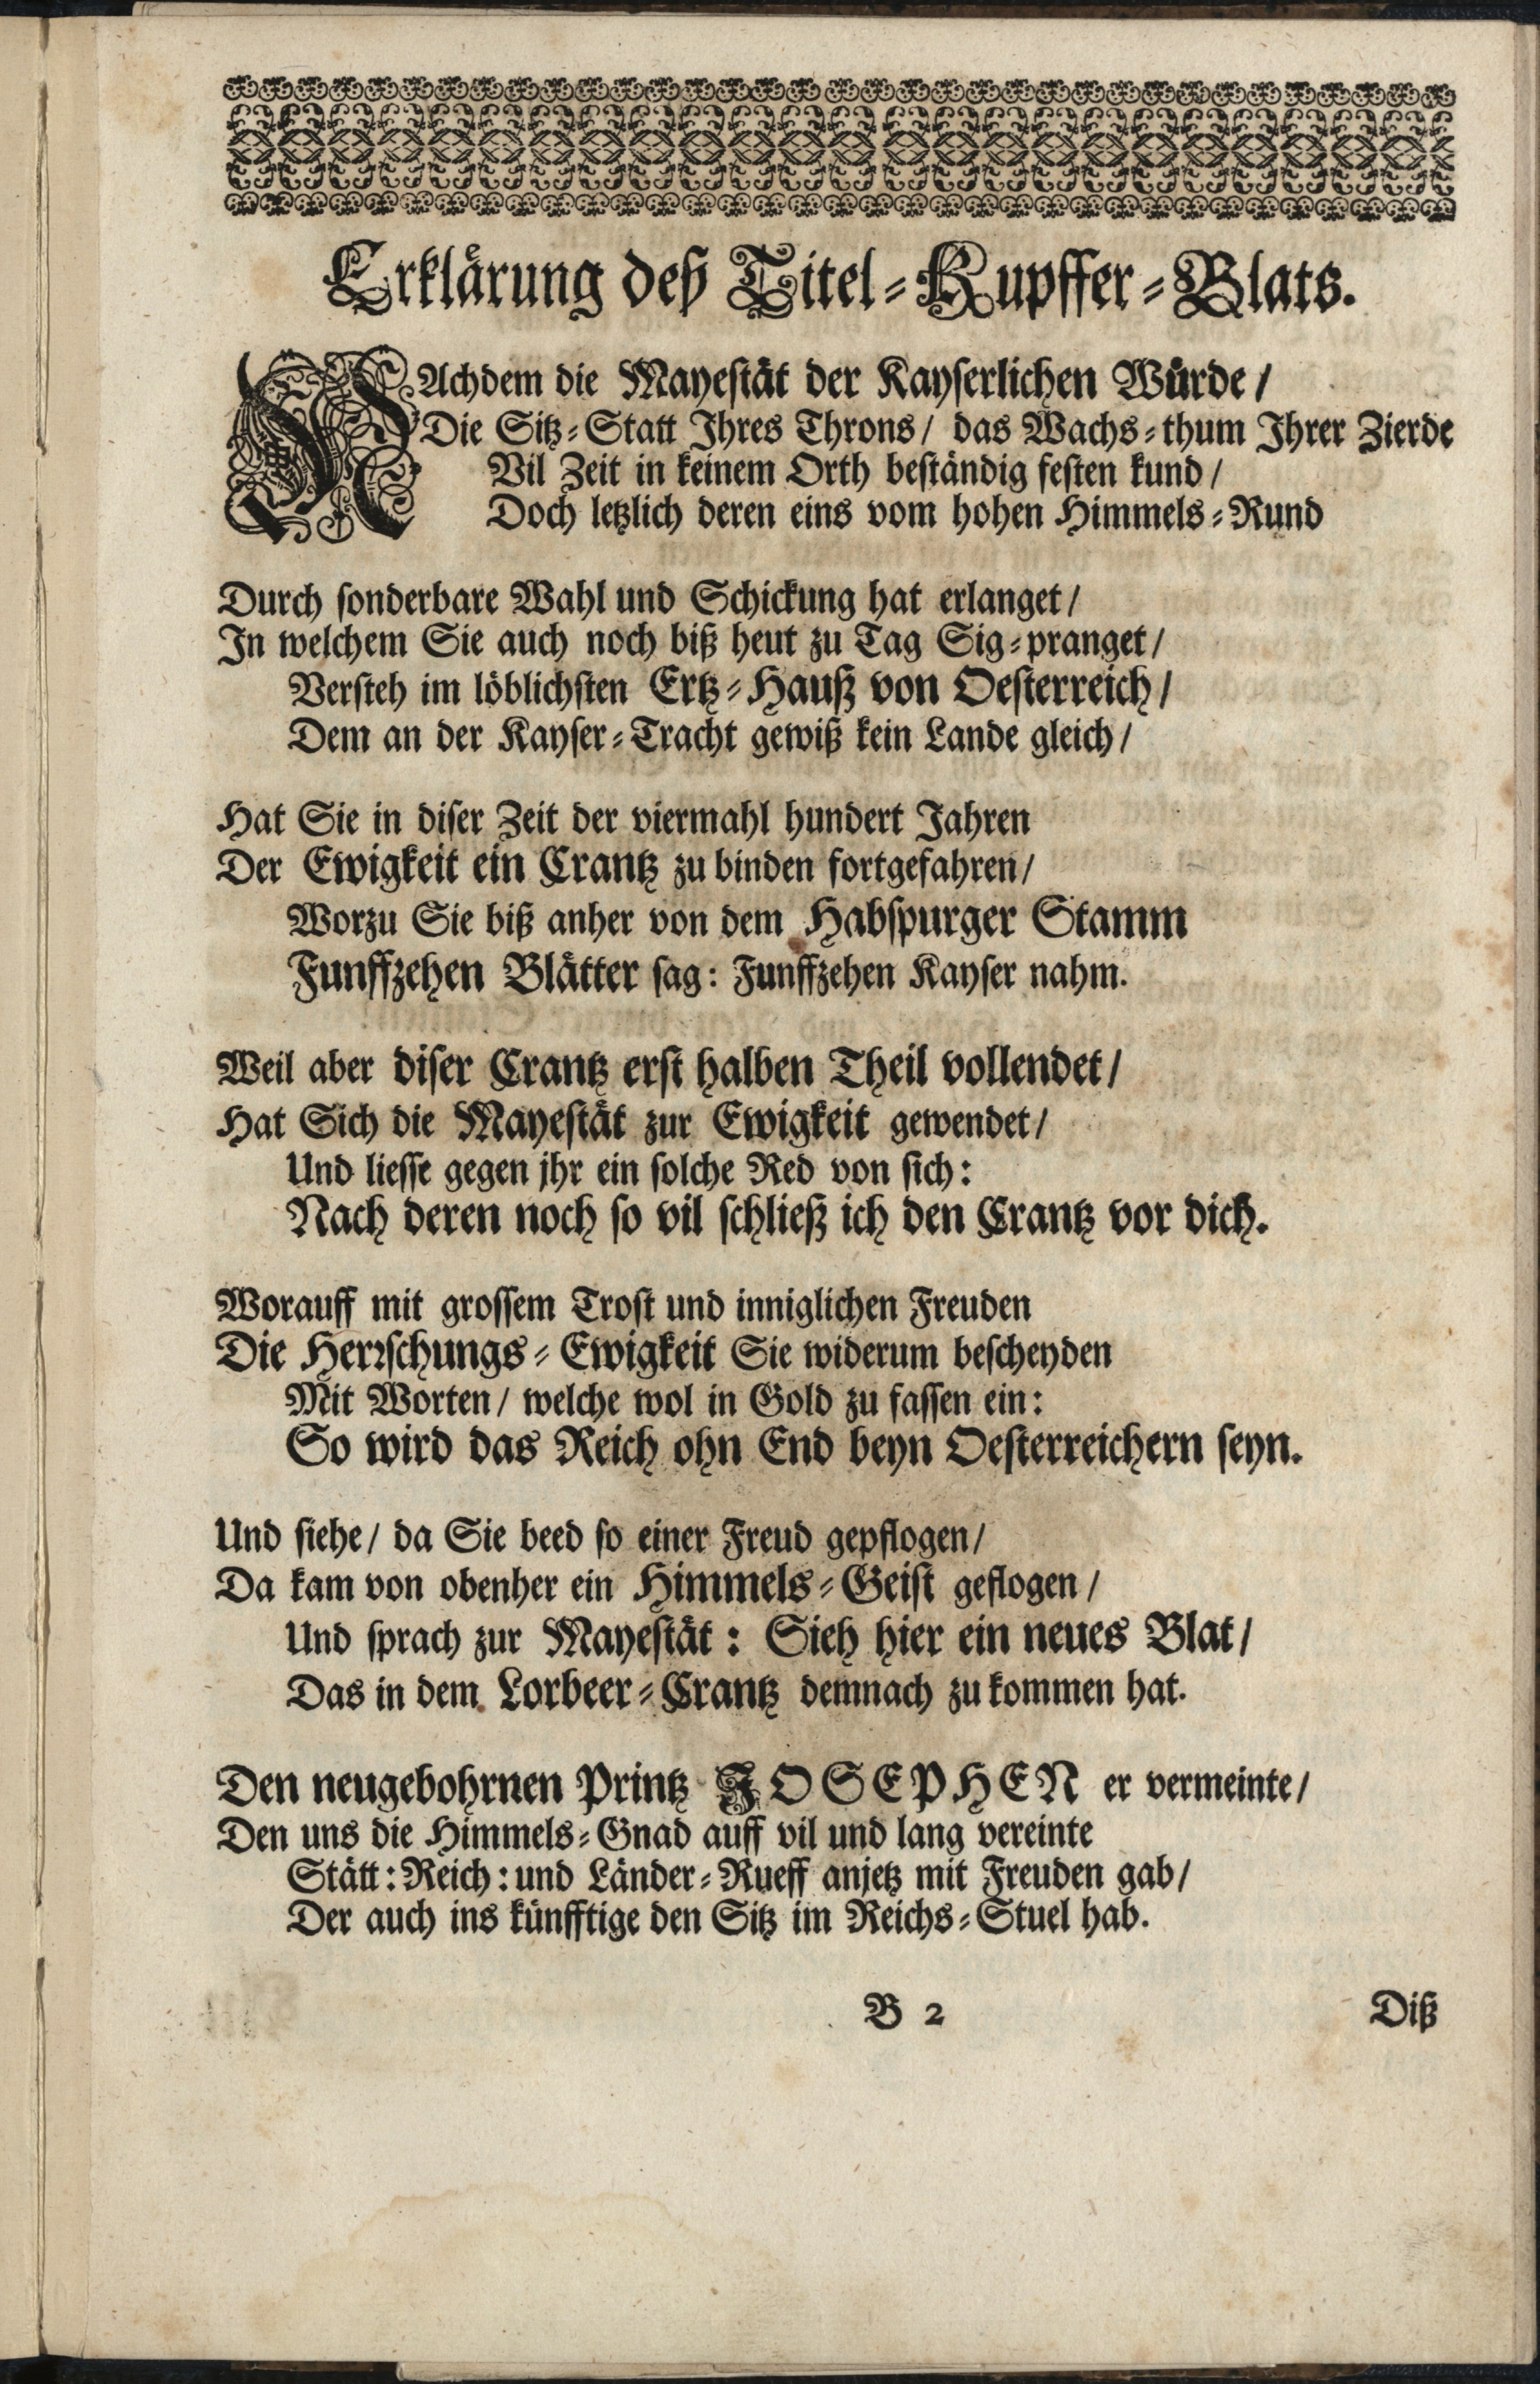 Erklärung deß Titel-Kupffer-Blats.
NAchdem die Mayestät der Kayserlichen Würde /
Die Sitz-Statt Ihres Throns / das Wachs-thum Ihrer Zierde
Vil Zeit in keinem Orth beständig festen kund /
Doch letzlich deren eins vom hohen Himmels-Rund
Durch sonderbare Wahl und Schickung hat erlanget /
In welchem Sie auch noch biß heut zu Tag Sig-pranget /
Versteh im löblichsten Ertz-Hauß von Oesterreich /
Dem an der Kayser-Tracht gewiß kein Lande gleich /
Hat Sie in diser Zeit der viermahl hundert Jahren
Der Ewigkeit ein Crantz zu binden fortgefahren /
Worzu Sie biß anher von dem Habspurger Stamm
Funffzehen Blätter sag: Funffzehen Kayser nahm.
Weil aber diser Crantz erst halben Theil vollendet /
Hat Sich die Mayestät zur Ewigkeit gewendet /
Und liesse gegen jhr ein solche Red von sich:
Nach deren noch so vil schließ ich den Crantz vor dich.
Worauff mit grossem Trost und inniglichen Freuden
Die Herrschungs-Ewigkeit Sie widerum bescheyden
Mit Worten / welche wol in Gold zu fassen ein:
So wird das Reich ohn End beyn Oesterreichern seyn.
Und siehe / da Sie beed so einer Freud gepflogen /
Da kam von obenher ein Himmels-Geist geflogen /
Und sprach zur Mayestät: Sieh hier ein neues Blat /
Das in dem Lorbeer-Crantz demnach zu kommen hat.
Den neugebohrnen Printz JOSEPHEN er vermeinte /
Den uns die Himmels-Gnad auff vil und lang vereinte
Stätt: Reich: und Länder-Rueff anjetz mit Freuden gab /
Der auch ins künfftige den Sitz im Reichs-Stuel hab.
B 2
Diß